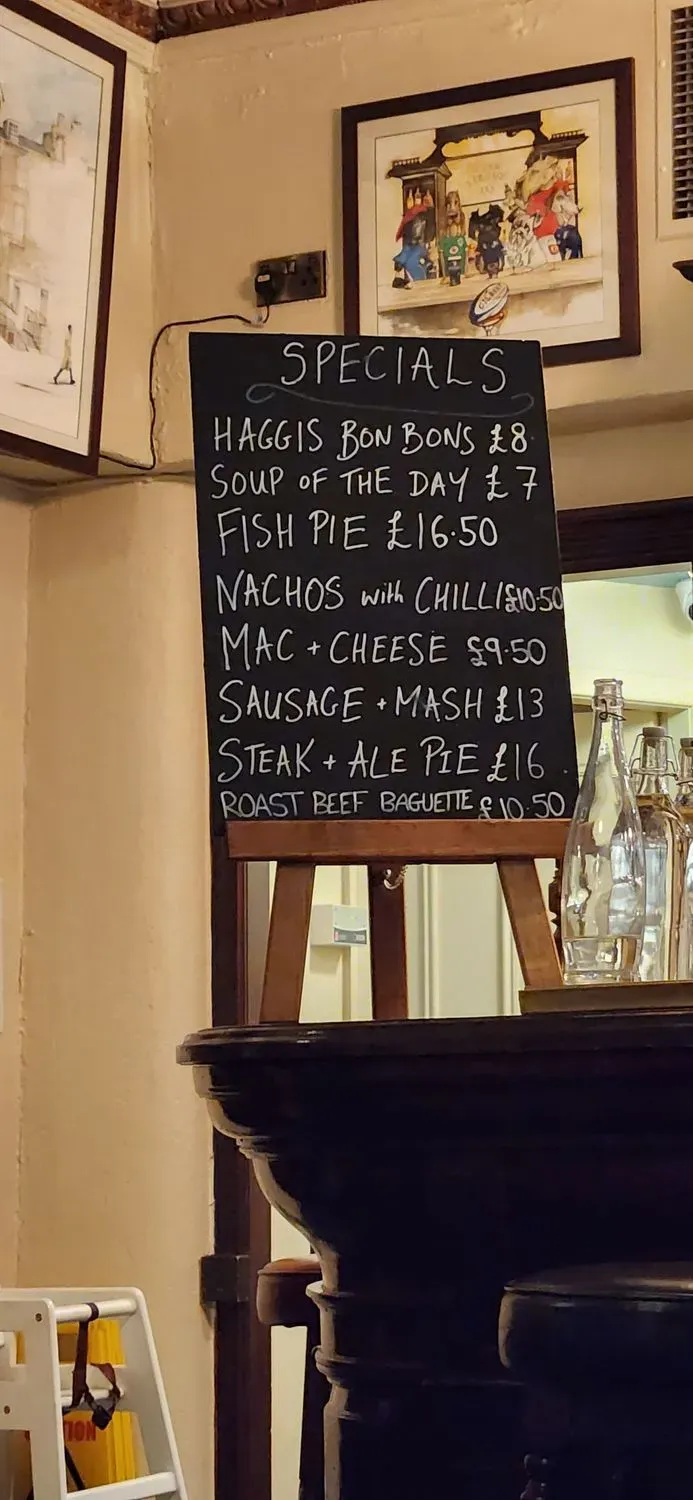 SPECIALS
HAGGIS BON BONS £8
SOUP OF THE DAY £7
FISH PIE £16.50
NACHOS with CHILLI £10.50
MAC + CHEESE £9.50
SAUSAGE + MASH £13
STEAK + ALE PIE £16
ROAST BEEF BAGUETTE £10.50